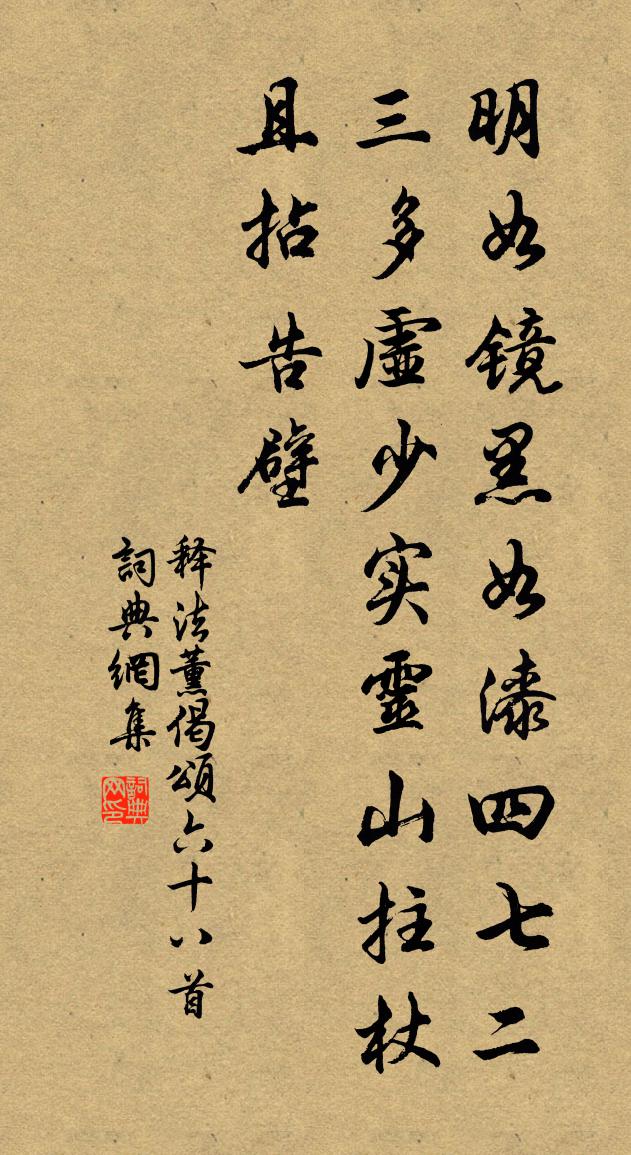 明如镜黑如漆四七二
三多虛少实靈山拄杖
且拈告壁
释法薰偈頌六十八首
詞典網集
詞典网印